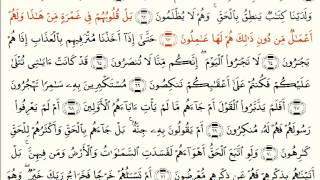 وَلَدَيْنَا كِتَٰبٌ يَنطِقُ بِٱلْحَقِّ ۚ وَهُمْ لَا يُظْلَمُونَ ۝٦٢ بَلْ قُلُوبُهُمْ فِى غَمْرَةٍ مِّنْ هَٰذَا وَلَهُمْ
أَعْمَٰلٌ مِّن دُونِ ذَٰلِكَ هُمْ لَهَا عَٰمِلُونَ ۝٦٣ حَتَّىٰٓ إِذَآ أَخَذْنَا مُتْرَفِيهِم بِٱلْعَذَابِ إِذَا هُمْ
يَجْـَٔرُونَ ۝٦٤ لَا تَجْـَٔرُوا۟ ٱلْيَوْمَ ۖ إِنَّكُم مِّنَّا لَا تُنصَرُونَ ۝٦٥ قَدْ كَانَتْ ءَايَٰتِى تُتْلَىٰ
عَلَيْكُمْ فَكُنتُمْ عَلَىٰٓ أَعْقَٰبِكُمْ تَنكِصُونَ ۝٦٦ مُسْتَكْبِرِينَ بِهِۦ سَٰمِرًا
تَهْجُرُونَ ۝٦٧ أَفَلَمْ يَدَّبَّرُوا۟ ٱلْقَوْلَ أَمْ جَآءَهُم مَّا لَمْ يَأْتِ ءَابَآءَهُمُ ٱلْأَوَّلِينَ ۝٦٨ أَمْ لَمْ يَعْرِفُوا۟
رَسُولَهُمْ فَهُمْ لَهُۥ مُنكِرُونَ ۝٦٩ أَمْ يَقُولُونَ بِهِۦ جِنَّةٌۢ ۚ بَلْ جَآءَهُم بِٱلْحَقِّ وَأَكْثَرُهُمْ لِلْحَقِّ
كَٰرِهُونَ ۝٧٠ وَلَوِ ٱتَّبَعَ ٱلْحَقُّ أَهْوَآءَهُمْ لَفَسَدَتِ ٱلسَّمَٰوَٰتُ وَٱلْأَرْضُ وَمَن فِيهِنَّ ۚ بَلْ
أَتَيْنَٰهُم بِذِكْرِهِمْ فَهُمْ عَن ذِكْرِهِم مُّعْرِضُونَ ۝٧١ أَمْ تَسْـَٔلُهُمْ خَرْجًا فَخَرَاجُ رَبِّكَ خَيْرٌ ۖ وَهُوَ